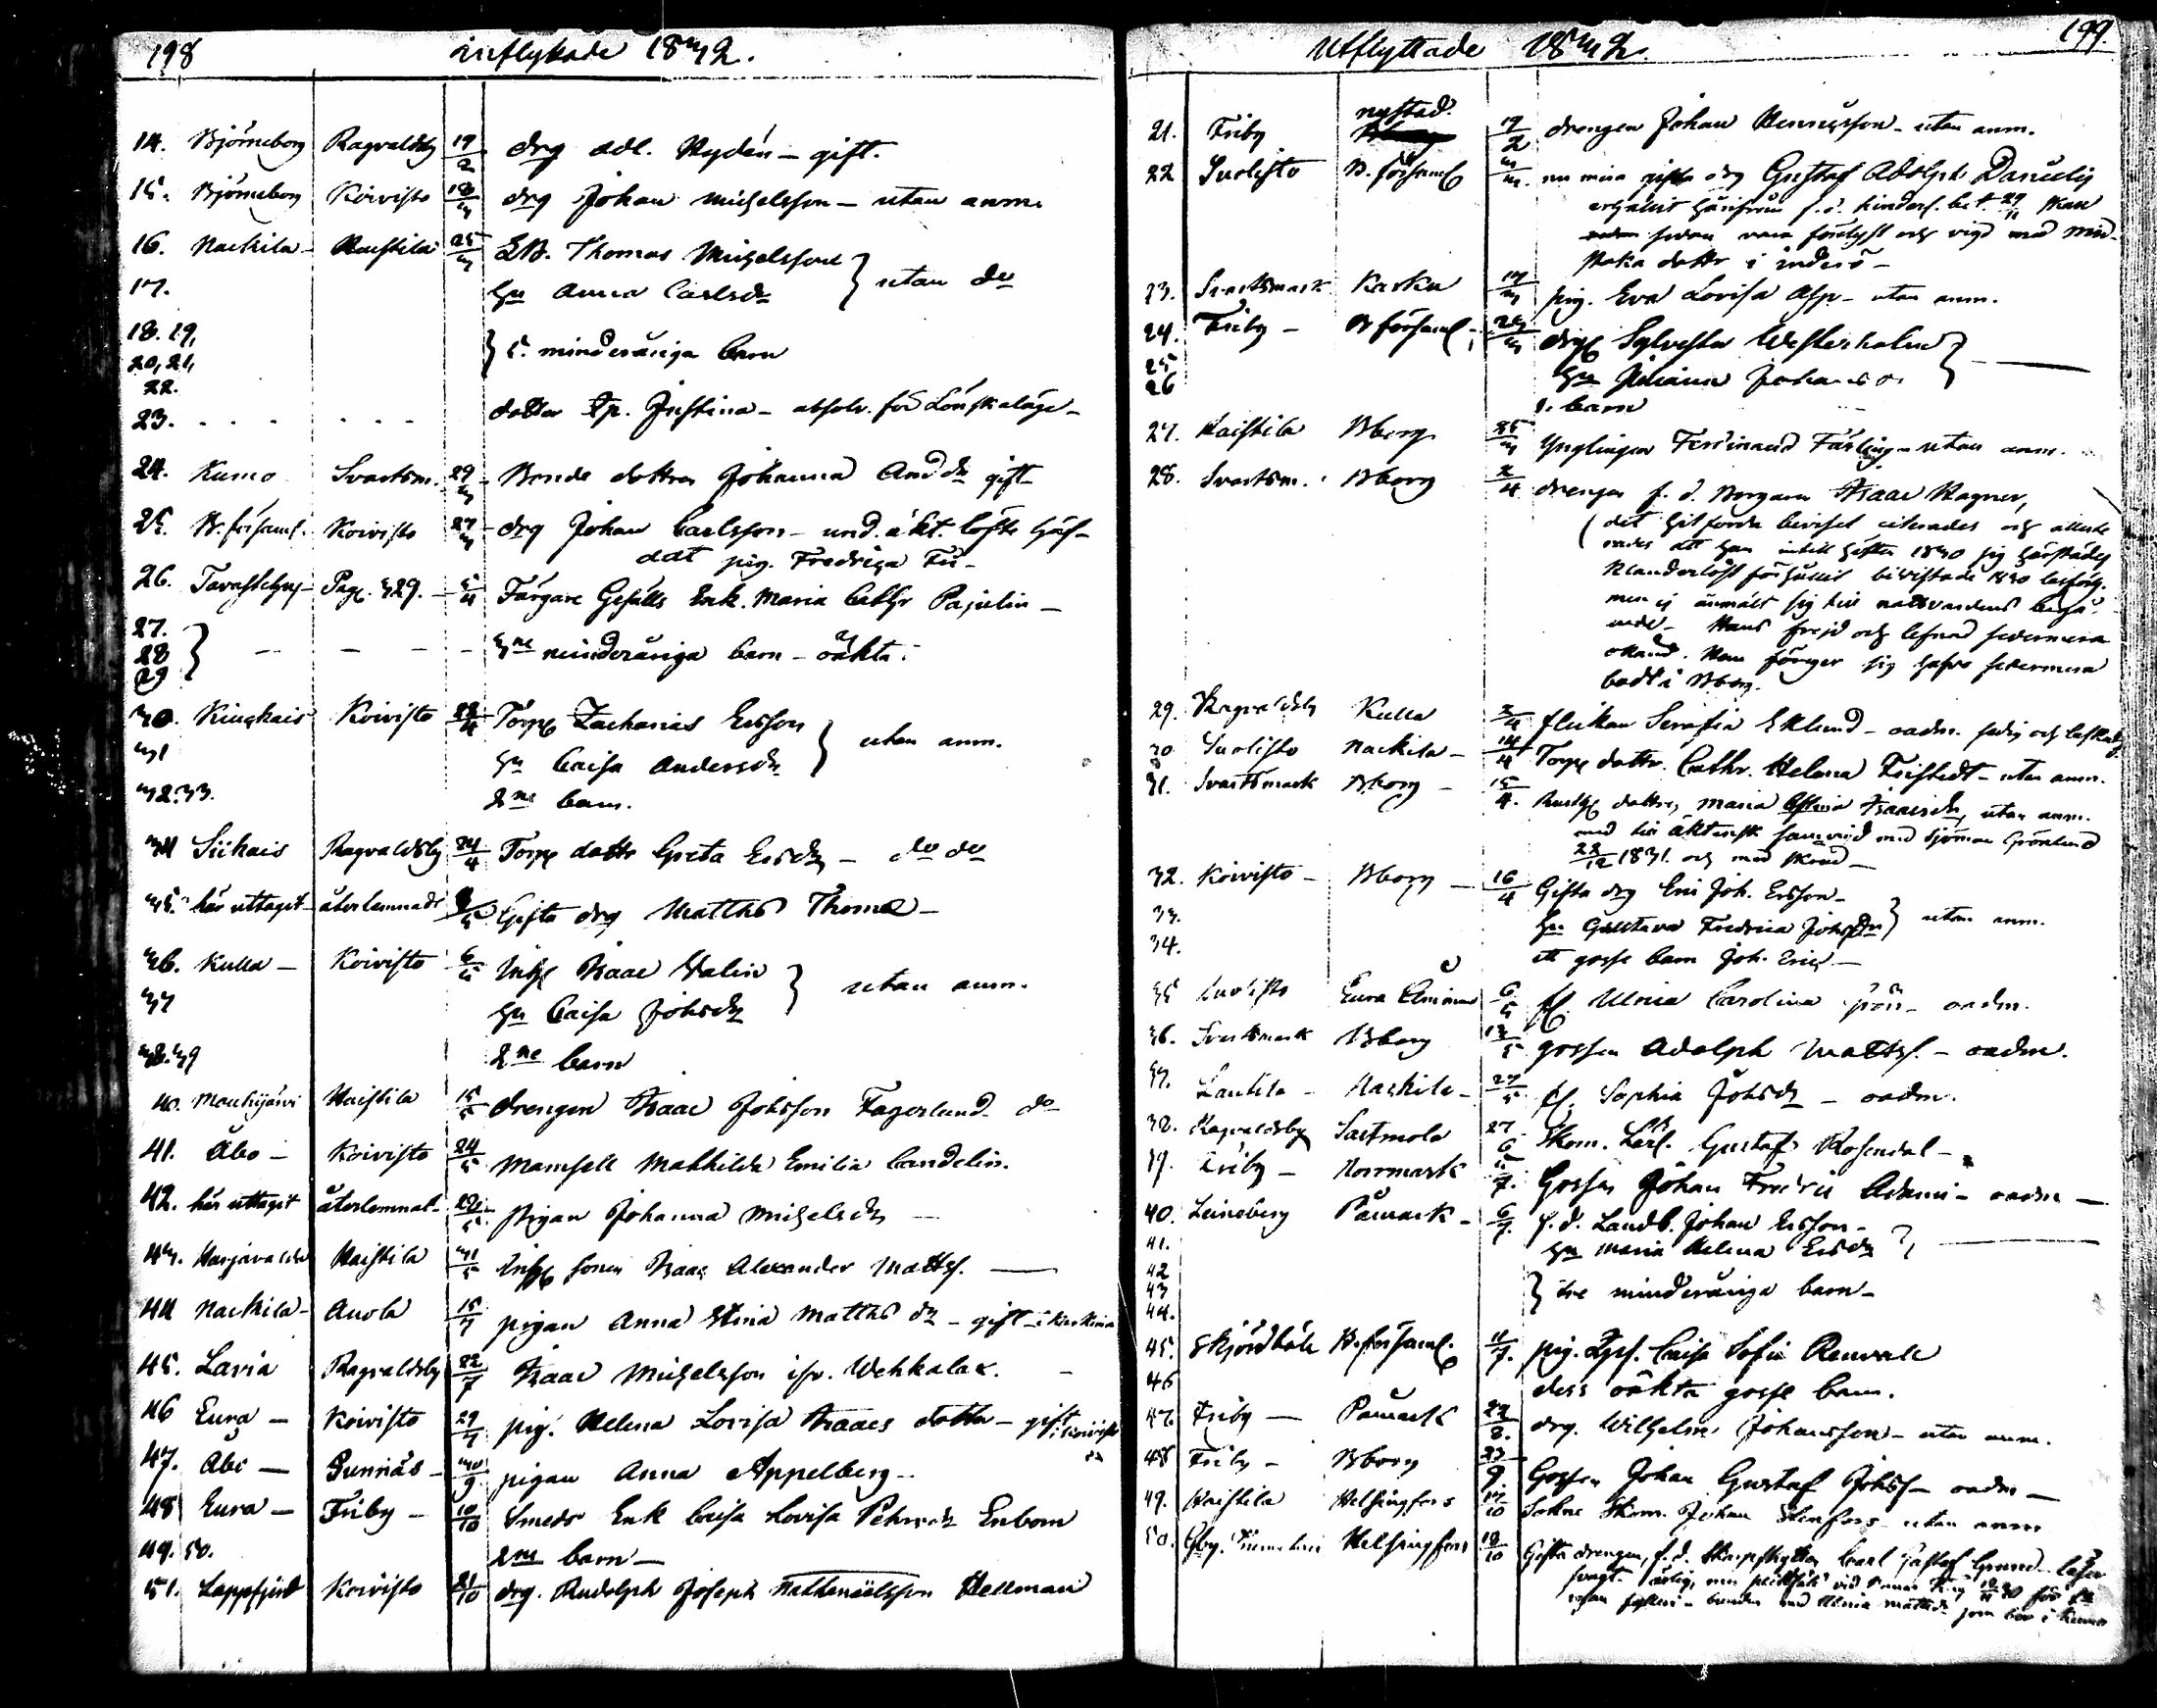 198 Inflyttade 1832.
14. Björneborg Ragvaldsby 17/2 drg Adl. Rydén – gift.
15. Björneborg Koivisto 18/3 drg Johan Michelsson – utan anm.
16. Nackila – Haistila 25/3 Thomas Michelsson
17. hu Anna Carlsdr } utan do
18. 19,
20, 21, } 5. minderåriga barn
22.
23. . . . . . . dotter Justina – absolv. för Lönskaläge –
24. Kumo Svartsm. 29/3 Bonde dottren Johanna And.dr gift
25. B. församl. Koivisto 27/3 drg Johan Carlsson – und. äkt. löfte häf-
dat pig. Fredrica
26. Tavastehus – Pag. 329. – 5/4 Färgare Gesälls Enk. Maria Cathr Pajulin –
27.
28 } – – – – 3ne minderåriga barn – oäkta.
29
30. Kiukais Koivisto 22/4 Torp Zacharias Ersson
31 hu Caisa Andersdr } utan anm.
32. 33. 2ne barn.
34 Siikais Ragvaldsby 24/4 Torp dottr Greta Ersdr – do do
35. här uttaget återlemnade /5 Gifta drg Matths Thomas –
36. Kulla – Koivisto 6/5 Isaac Walin
37 hu Caisa Johsdr } utan anm.
38. 39 2ne barn
40. Mouhijärvi Haistila 15/5 drengen Isaac Johsson Fagerlund do
41. Åbo – Koivisto 24/5 Mamsell Mathilda Emilia Candelin.
42. här uttaget återlemnat – 29/5 Pigan Johanna Michelsdr –
43. Harjavalda Haistila 31/5 sonen Isaac Alexander Mattss. –
44 Nackila – Anola 15/7 pigan Anna Stina Matths dr – gift
45. Lavia Ragvaldsby 22/7 Isaac Michelsson Wehkalax. –
46 Eura – Koivisto 29/7 pig. Helena Lovisa Isaacs dotter – gift i Koivisto
47. Åbo – Sunnäs – 30/9 pigan Anna Appelberg –
48 Eura – Friby – 10/10 Smeds Enk Caisa Lovisa Pehrsdr Enbom
49. 50. 2ne barn –
51. Lappfjerd Koivisto 21/10 drg. Rudolph Joseph Nathanaelsson Hellman
Utflyttade 1832. 199.
21. Friby nystad. 17/2 drengen Johan Henricsson – utan anm.
22 Suolisto B. församl /3. gifta drg Gustaf Adolph Daniels
erhållit härifrån f.d. hinderl. bet. 29/11 Kan
sedan vara förelyst och vigd med
dottr i
23. Svartsmark Karku 17/3 pig. Eva Lovisa Asp – utan anm.
24. Friby – B församl. 24/3 drg Sylvester Westerholm
25 hu Juliana Johansdr } –
26 1. barn
27. Haistila Bborg 25/3 Ynglingen Ferdinand Färling – utan anm.
28. Svartsm. Bborg 2/4 drengen f. d. Borgaren Isaac Ragner,
(det hitförda beviset citerades och
att han intill hösten 1830 sig härstädes
Klanderlöst förhållit bevistade 1830 läsförh.
men ej anmält sig till nattvardens begå-
ende – Hans frejd och lefnad sedermera
okänd. Han säger sig hafva sedermera
bodt i Bborg.
29. Ragvaldsby Kulla 2/4 flickan Serafia Eklund – oadm.
30 Suolisto Nackila – 14/4 Torp dottr. Cathr. Helena Fristedt – utan anm.
31. Svartsmark Bborg – 15/4. dottren Maria Isaacsdr, utan anm.
med sjöman Grönlund
22/12 1831. och med
32. Koivisto – Bborg – 16/4 Gifta drg Eric Joh. Ersson –
33. hu Gustava Fredrica Johsdr } utan anm.
34. ett gosse barn Joh. Eric –
35 Suolisto Eura Åminne 6/5 fl. Ulrica Carolina – oadm.
36. Svartsmark Bborg 13/5 gossen Adolph Mattss. – oadm.
37. Lautila – Nackila – 27/5 fl. Sophia Johsdr – oadm.
38. Ragvaldsby Sastmola 27/6 Skom. Lärl. Gustaf Rosendal –
39. Friby – Norrmark 5/7. Gossen Johan Fredric – oadm –
40. Leineberg Påmark – 6/7. f. d. Landb. Johan Ersson –
41. hu Maria Helena Ersdr } –
42
43 } tre minderåriga barn –
44.
45. Skjördbäle B. församl. 11/7. pig. Caisa Sofia Renvall
46 dess oäkta gosse barn.
47. Friby – Påmark 22/8. drg. Wilhelm Johansson – utan anm.
48 Friby – Bborg 23/9. Gossen Johan Gustaf Johss – oadm –
49. Haistila Helsingfors 17/10 Skom. Johan Stenfors – utan anm
50. Helsingfors 19/10 Gifta drengen, f. d. Skarpskytten Carl Gustaf Grund – läser
svagt.